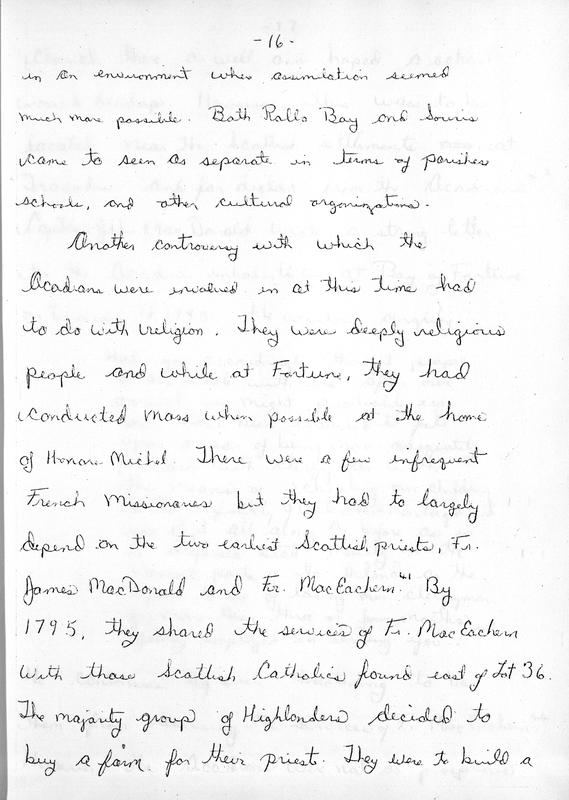 -16-
in an environment when assimilation seemed
much more possible. Both Rollo Bay and Souris
came to seen as separate in terms of parishes
schools, and other cultural organizations.
Another controversy with which the
Acadians were involved in at this time had
to do with religion. They were deeply religious
people and while at Fortune, they had
conducted mass when possible at the home
of Honore Michel. There were a few infrequent
French missionaries but they had to largely
depend on the two earliest Scottish priests, Fr.
James MacDonald and Fr. MacEachern.41 By
1795, they shared the services of Fr. MacEachern
with those Scottish Catholics found east of Lot 36.
The majority group of Highlanders decided to
buy a farm for their priest. They were to build a